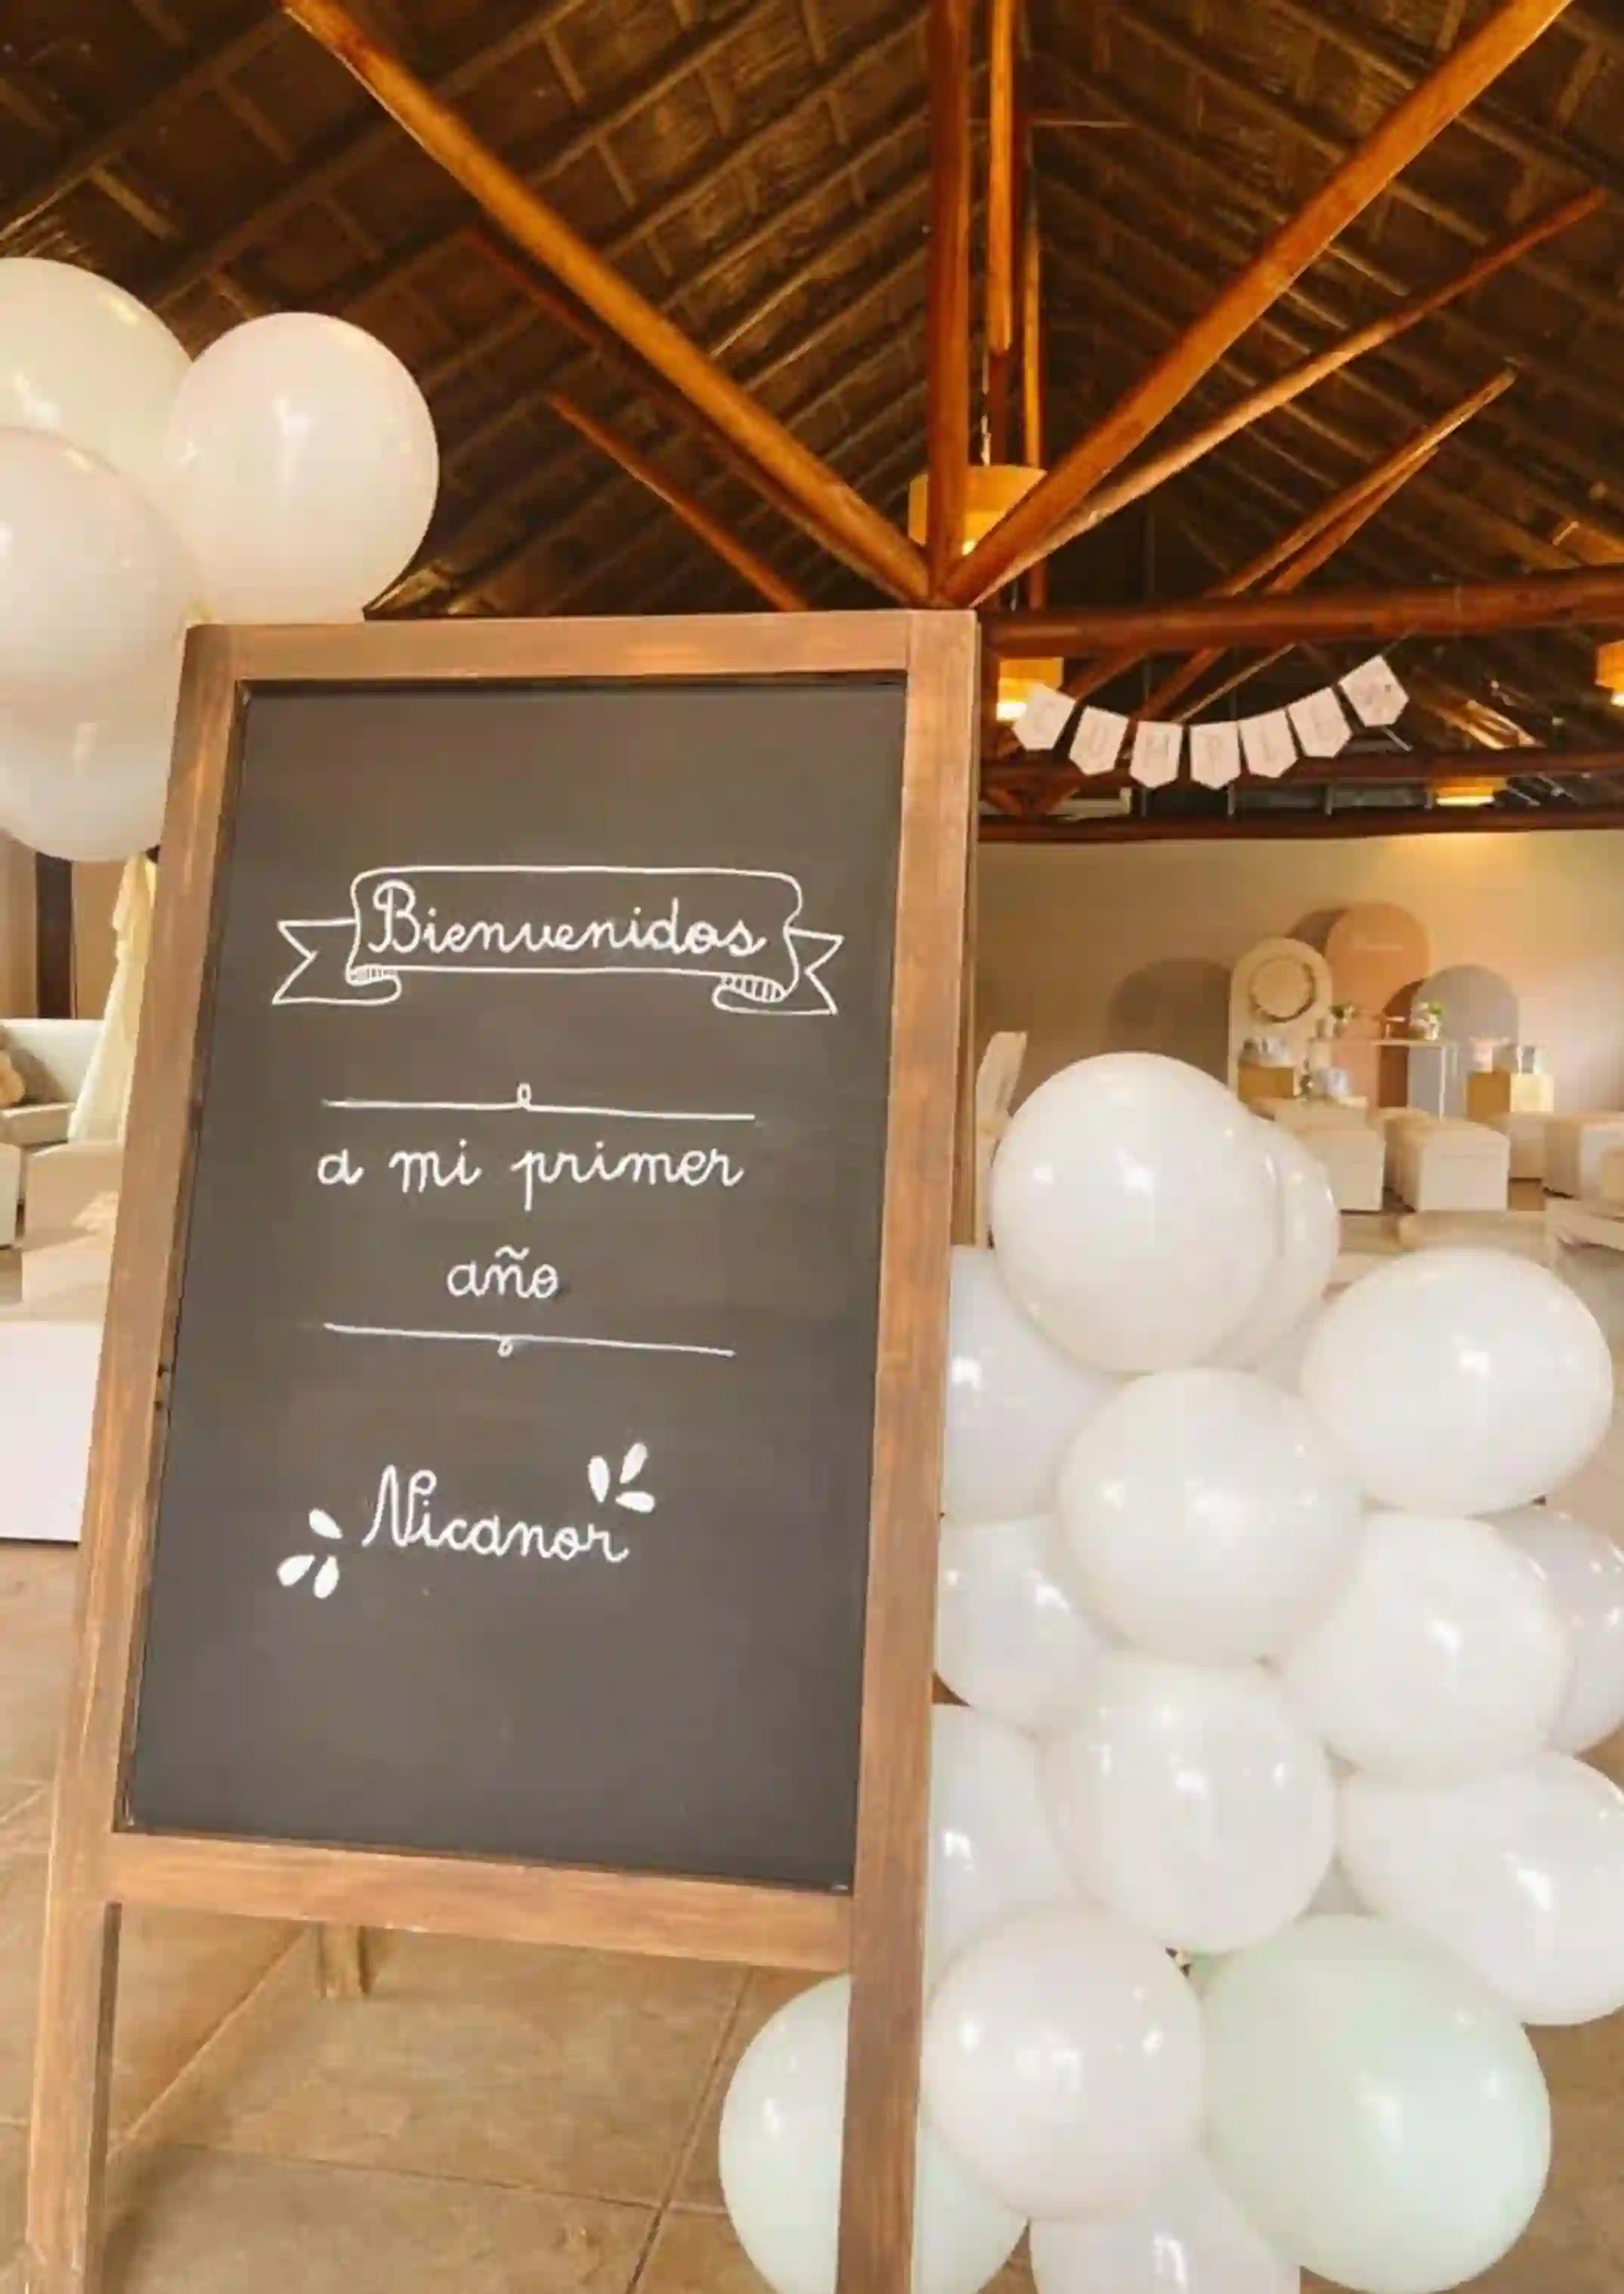 Bienvenidos
a mi primer
año
Nicanor